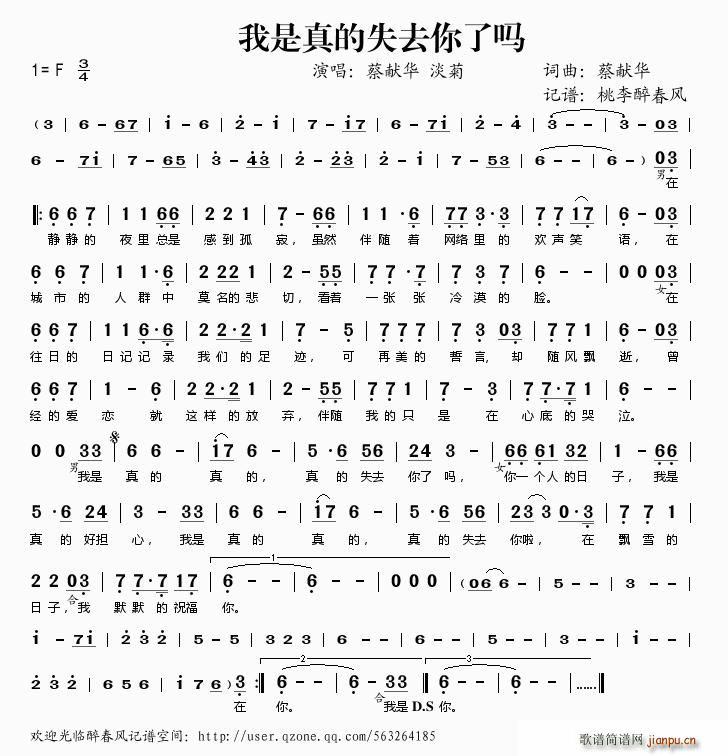 我是真的失去你了吗
1= F 3/4 演唱：蔡献华 淡菊 词曲：蔡献华
记谱：桃李醉春风
（3 | 6 - 67 | i - 6 | 2 - i | 7 - i7 | 6 - 71 | 2 - 4 | 3 - - | 3 - 03 |
6 - 7i | 7 - 65 | 3 - 43 | 2 - 23 | 2 - i | 7 - 53 | 6 - - | 6 - - ） 03 |
男 在
|: 6 6 7 | 1 1 66 | 2 2 1 | 7 - 66 | 1 1 · 6 | 77 3 · 3 | 7 7 17 | 6 - 03 |
静静的 夜里总是 感到孤 寂，虽然 伴随着 网络里的 欢声笑 语，在
6 6 6 | 1 1 1·6 | 2 22 1 | 2 - 55 | 7 7 · 7 | 3 7 7 | 6 - - | 0 0 03 |
城市的 人群中 莫名的悲 切，看着 一张张 冷漠的 脸。 女 在
6 6 7 | 1 1 6·6 | 2 2·2 1 | 7 - 5 | 7 7·7 | 3 03 | 7 7 1 | 6 - 03 |
往日的 日记记录 我们的足 迹，可 再美的 誓言，却 随风飘 逝，曾
6 6 7 | 1 - 6 | 2 22·2 1 | 2 - 55 | 7 71 7 | 3 - 7 | 7 7·7 1 | 6 - - |
经的爱 恋 就 这样的放 弃，伴随 我的只 是 在 心底的哭 泣。
0 0 33 | 6 6 - | i7 6 - | 5 · 6 56 | 24 3 - | 66 61 32 | 1 - 66 |
男 我是 真的 真的， 真的失去 你了吗， 女 你一个人的日 子，我是
5 · 6 24 | 3 - 33 | 6 6 - | i7 6 - | 5 · 6 56 | 23 3 0·3 | 7 7 1 |
真的好担 心，我是 真的 真的， 真的失去 你啦， 在 飘雪的
2 2 03 | 7 7·7 17 | 6 - - | 6 - - | 0 0 0 | （06 6 - | 5 - 3 | 2 3 2 |
日子，合 我 默默的祝福 你。
1
i - 7i | 2 3 2 | 5 - 5 | 3 2 3 | 5 - 5 | 3 2 3 | 6 6 - | 5 - 3 |
2 3 2 | 6 5 6 | i 7 6 ） 3 :| 6 - - | 6 - 33 :| 6 - - | 6 - - |
2 3
在 你。 合 我是 D.S 你。
欢迎光临醉春风记谱空间：http://user.qzone.qq.com/563264185
歌谱简谱网
jianpu.cn